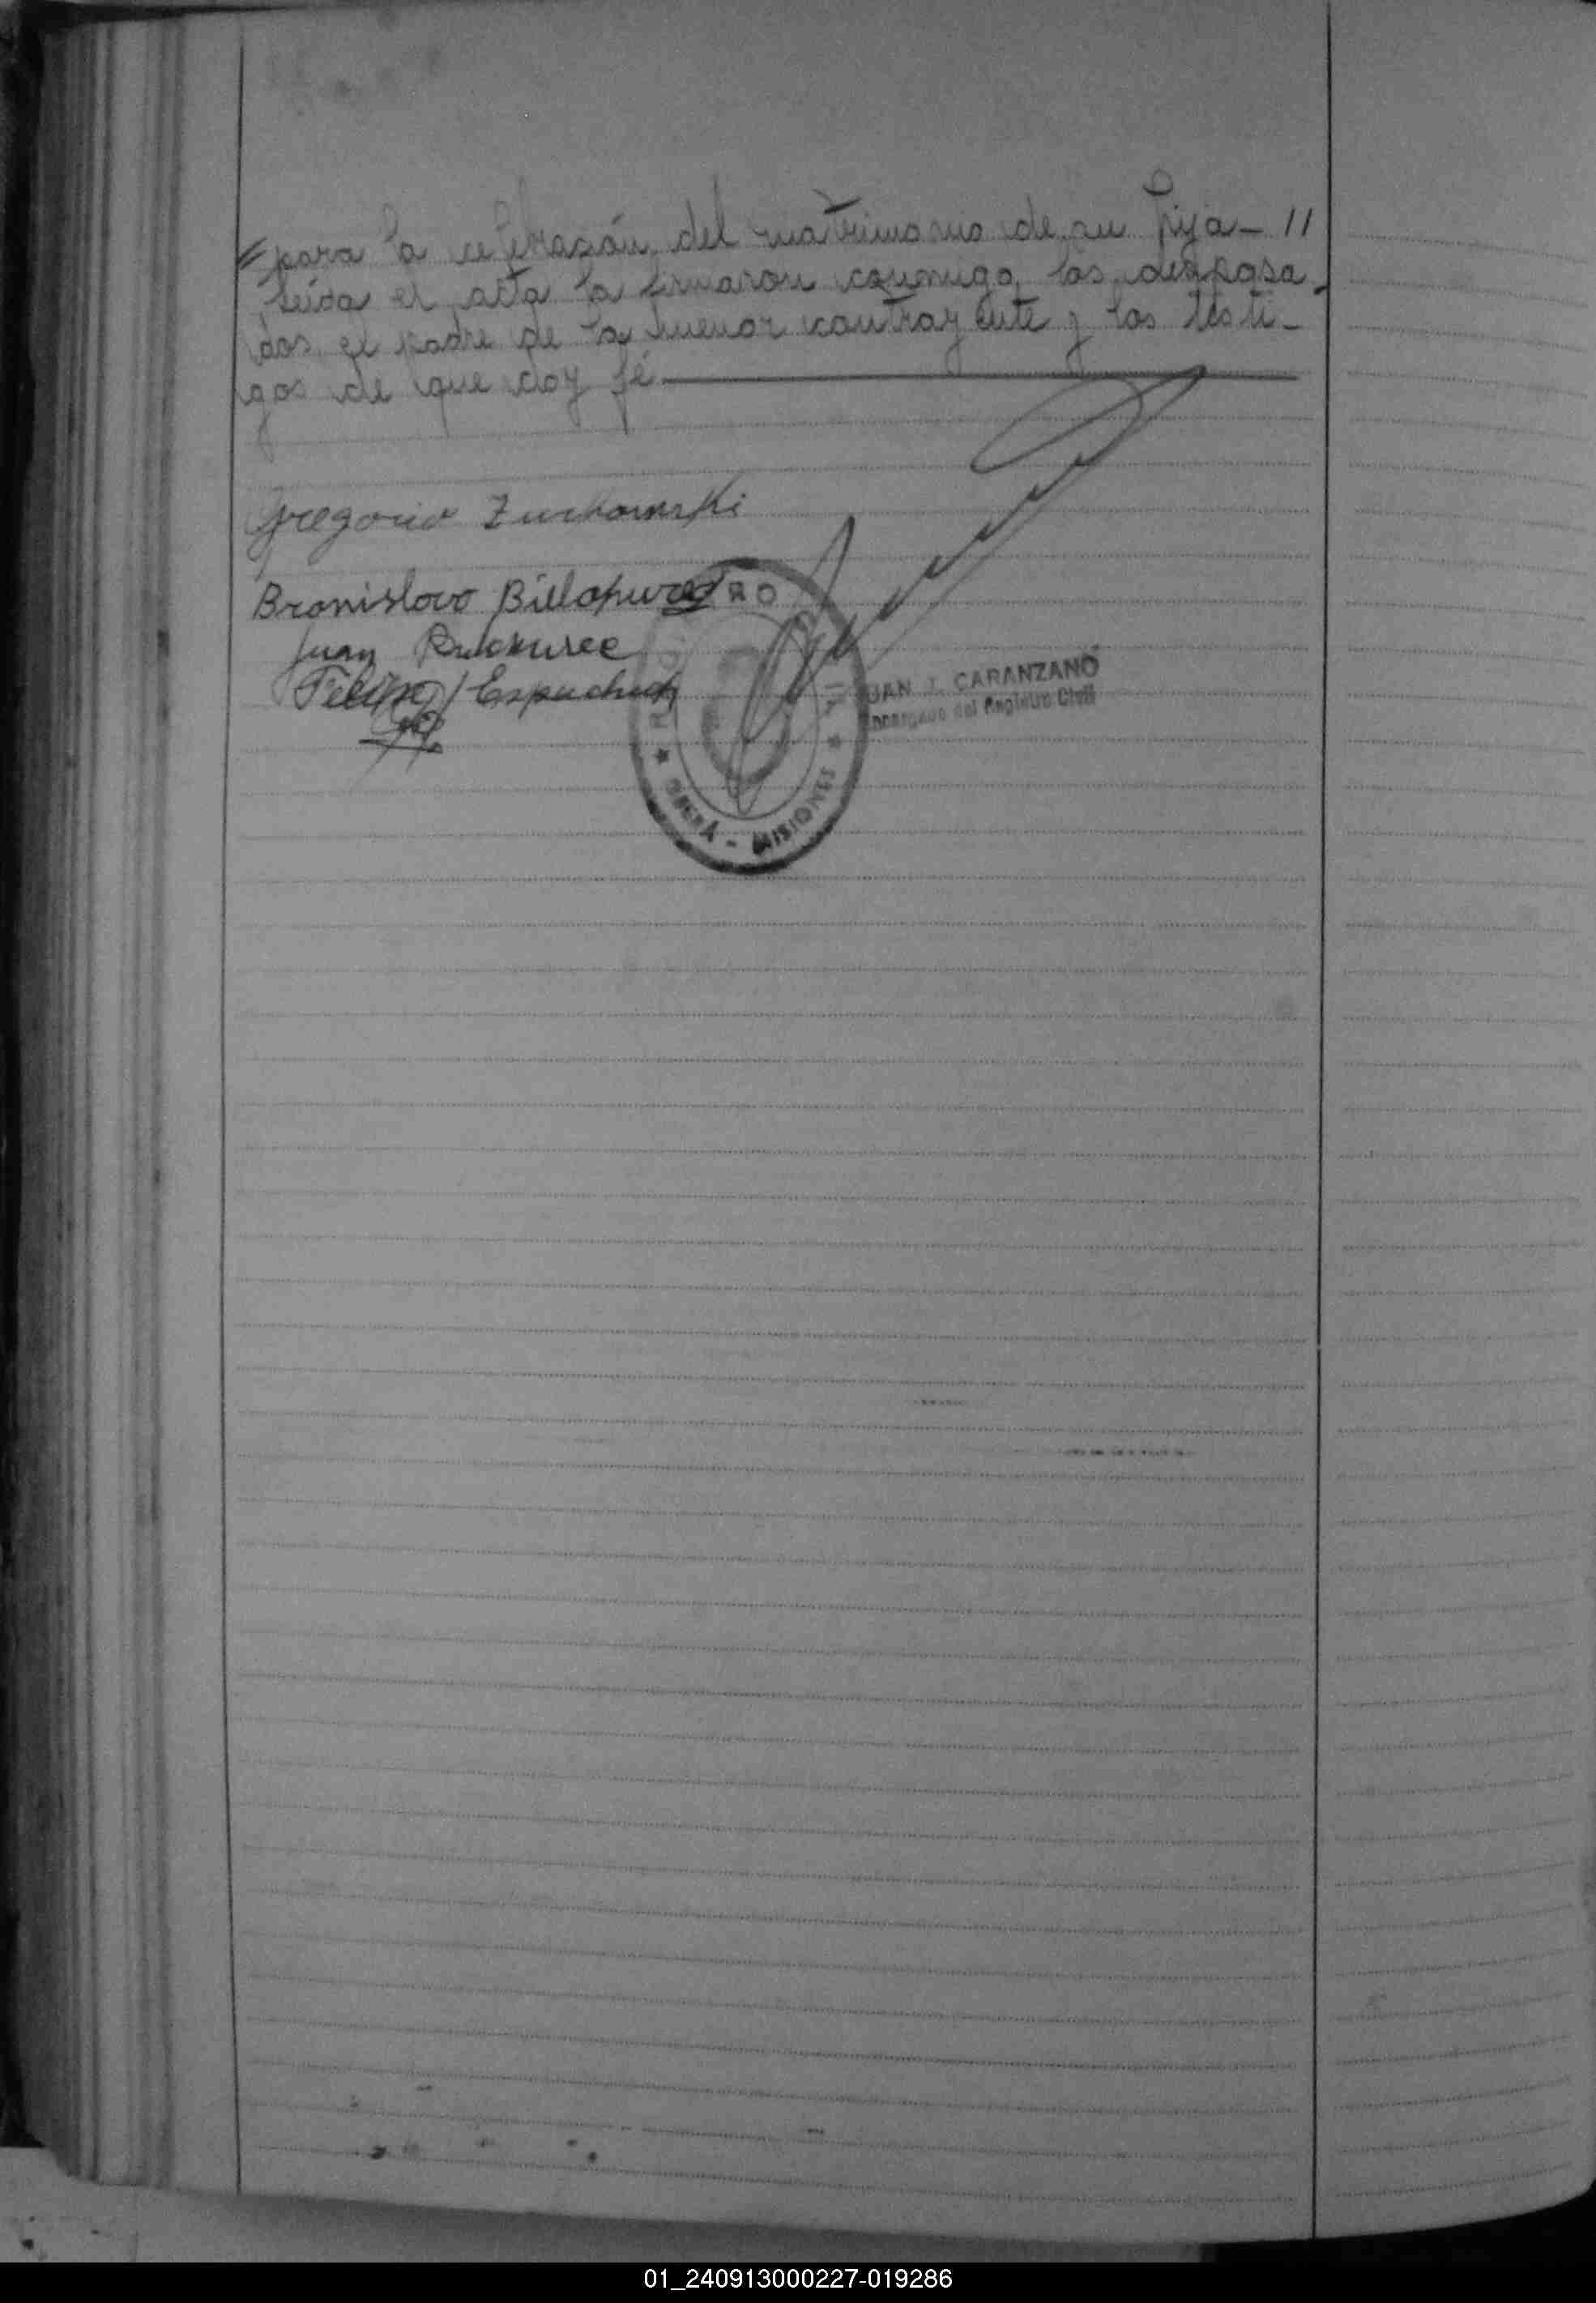 = para la celebrasión del matrimonio de su hija - //
leida el acta la firmaron conmigo los desposa-
dos el padre de la menor contrayente y los testi-
gos de que doy fé
Gregorio Zurkowski
Bronislovo
Juan
Felipe
REGISTRO CIVIL
★ OBERÁ - MISIONES ★
JUAN J. CARANZANO
Encargado del Registro Civil
01_240913000227-019286